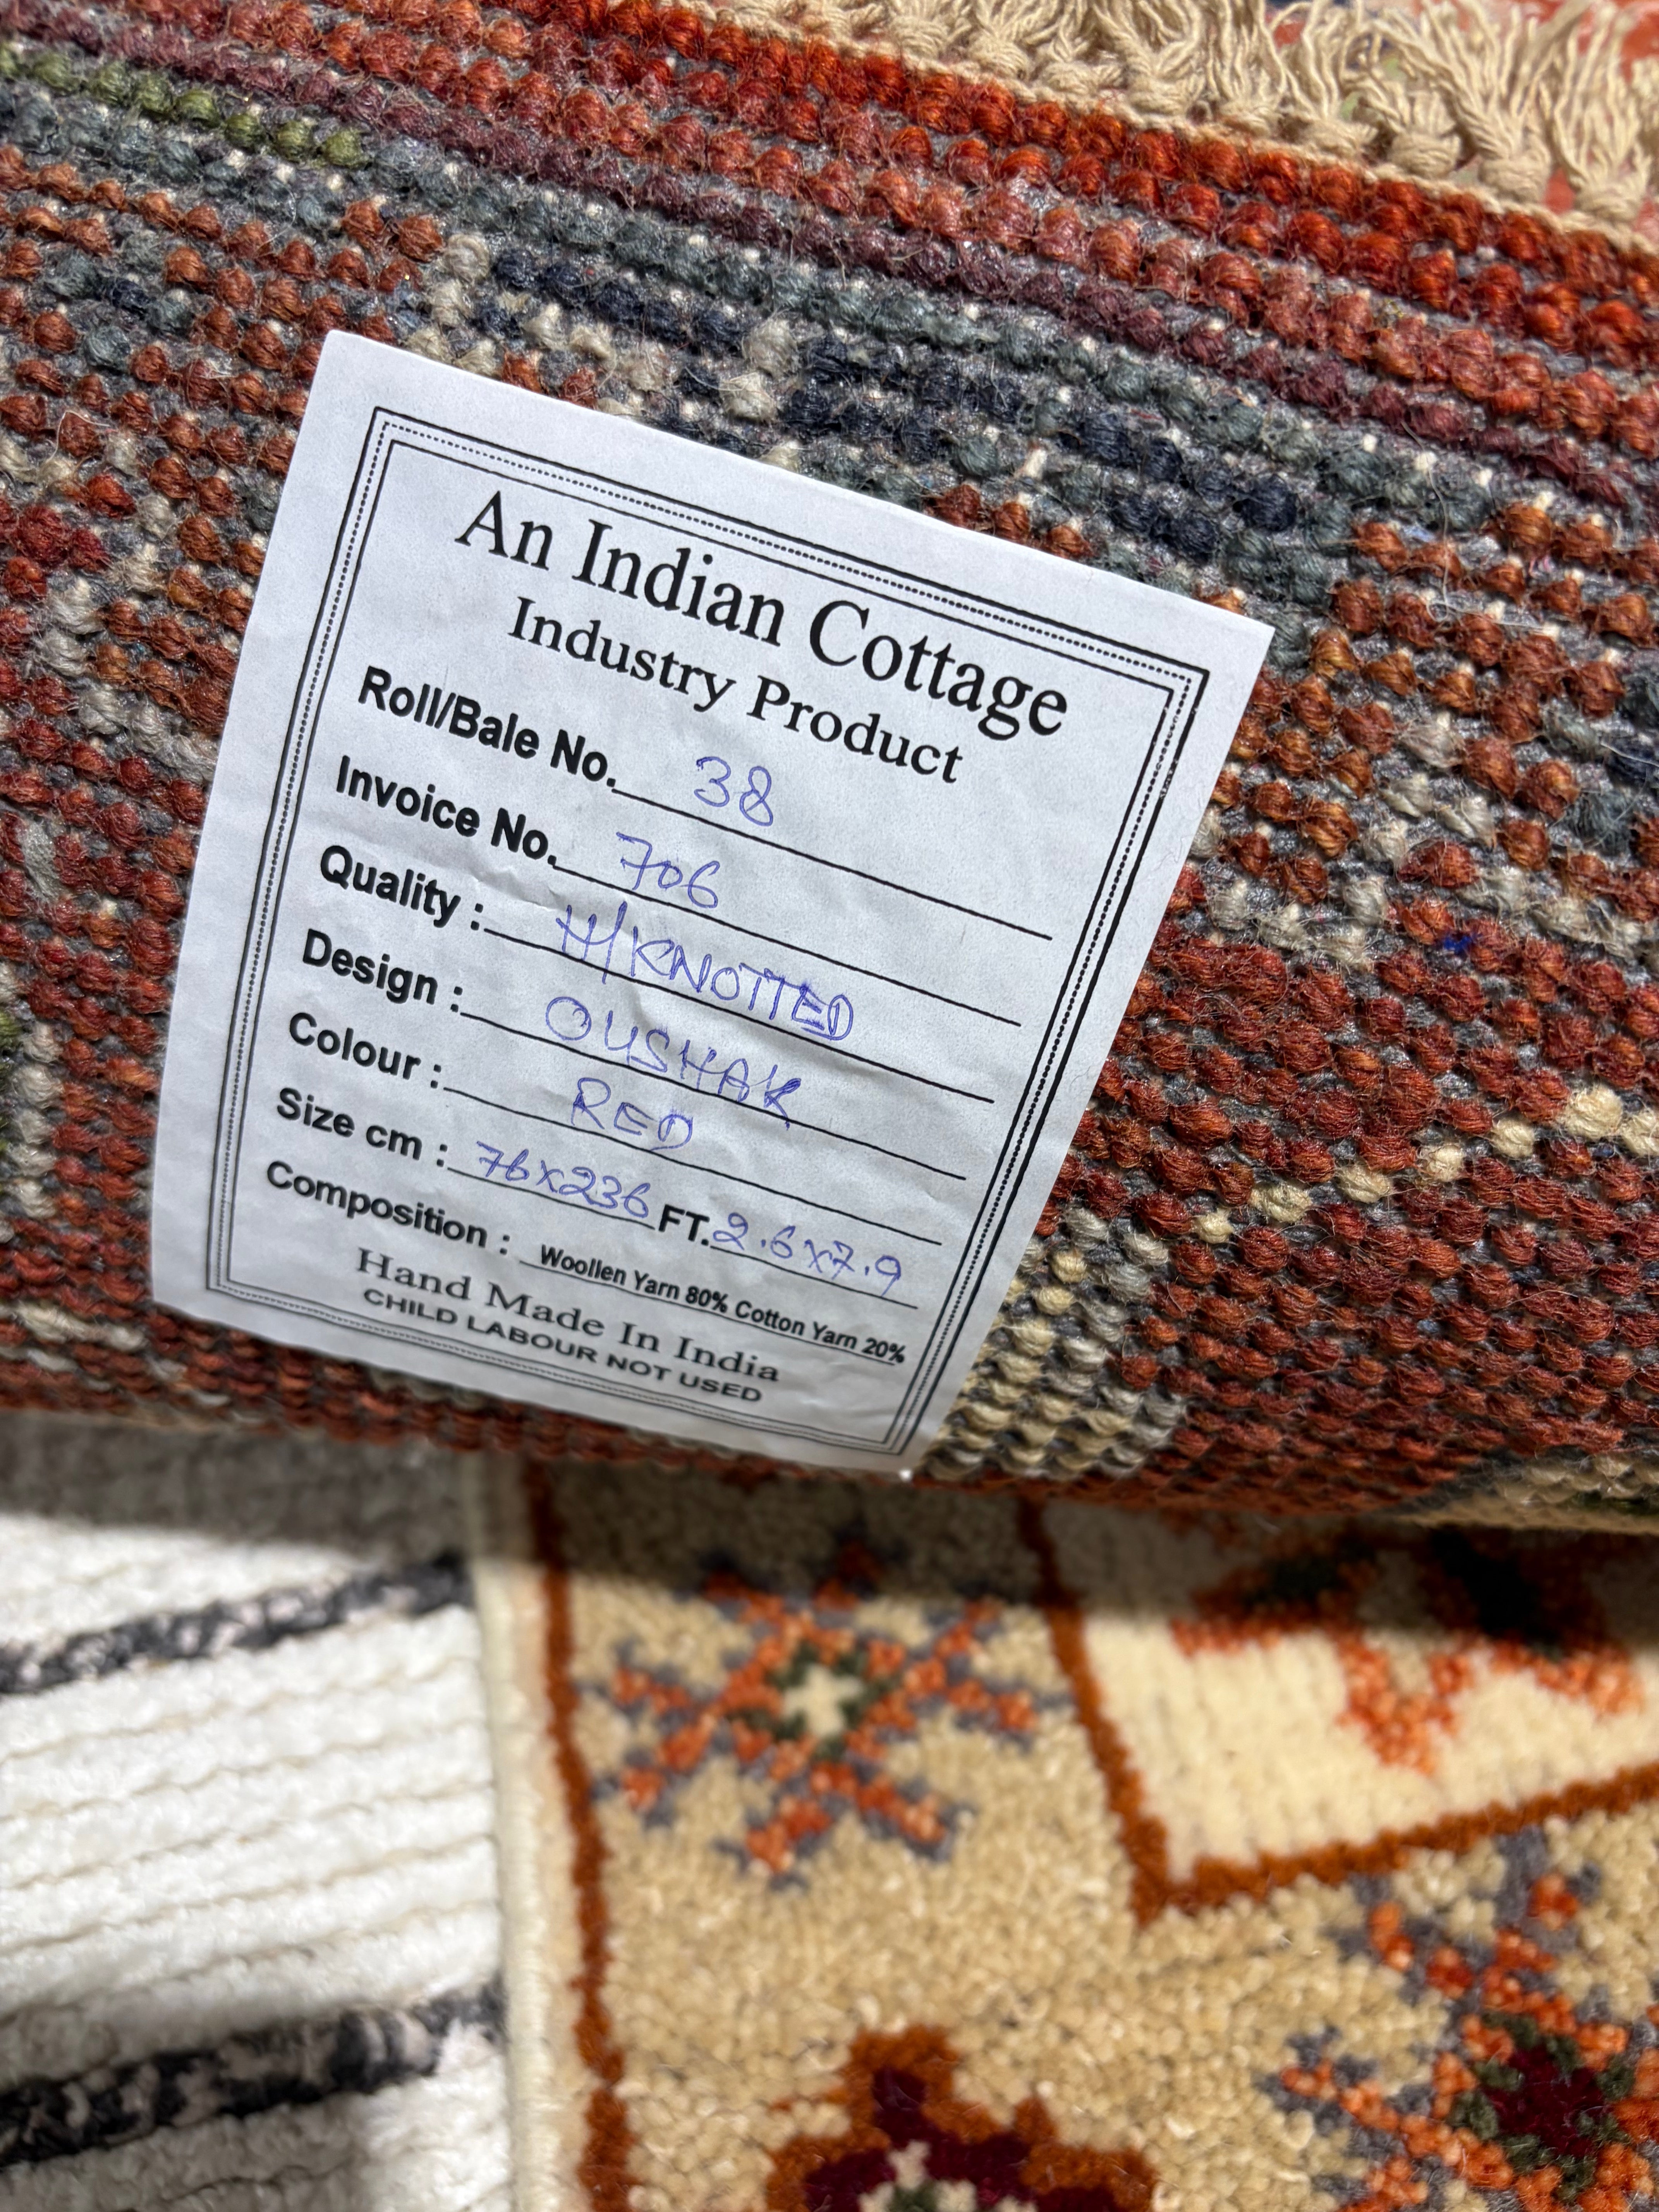 An Indian Cottage
Industry Product
Roll/Bale No. 38
Invoice No. 706
Quality : H/KNOTTED
Design : OUSHAK
Colour : RED
Size cm : 76x236 FT. 2.6x7.9
Composition : Woollen Yarn 80% Cotton Yarn 20%
Hand Made In India
CHILD LABOUR NOT USED